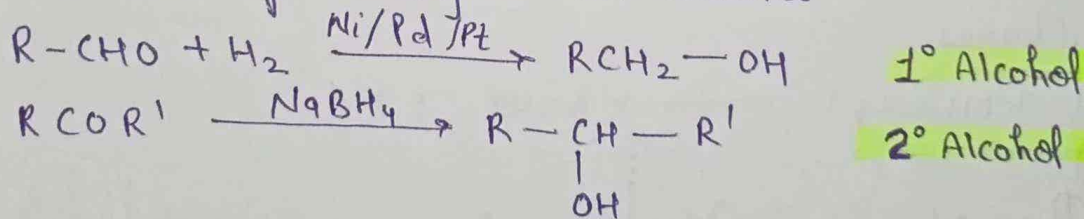 R-CHO + H₂ Ni/Pd/Pt → RCH₂-OH 1° Alcohol
RCOR' NaBH₄ → R-CH-R' 2° Alcohol
|
OH